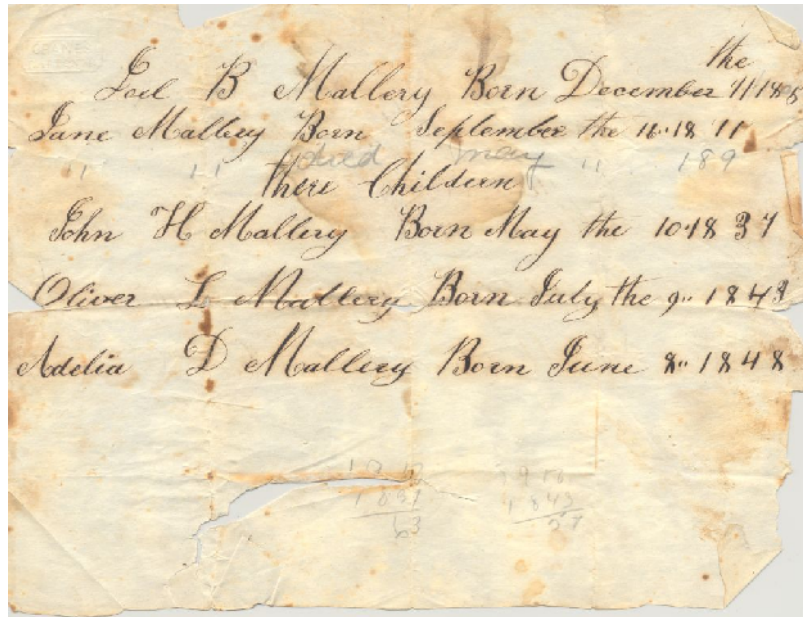 the
Joel B Mallery Born December 11/18
Jane Mallery Born September the 11..18 11
" " died may 11 189
there Childern
John H Mallery Born May the 10.18 37
Oliver L Mallery Born July the 9.. 1843
Adelia D Mallery Born June 8.. 1848
1837 1843
63